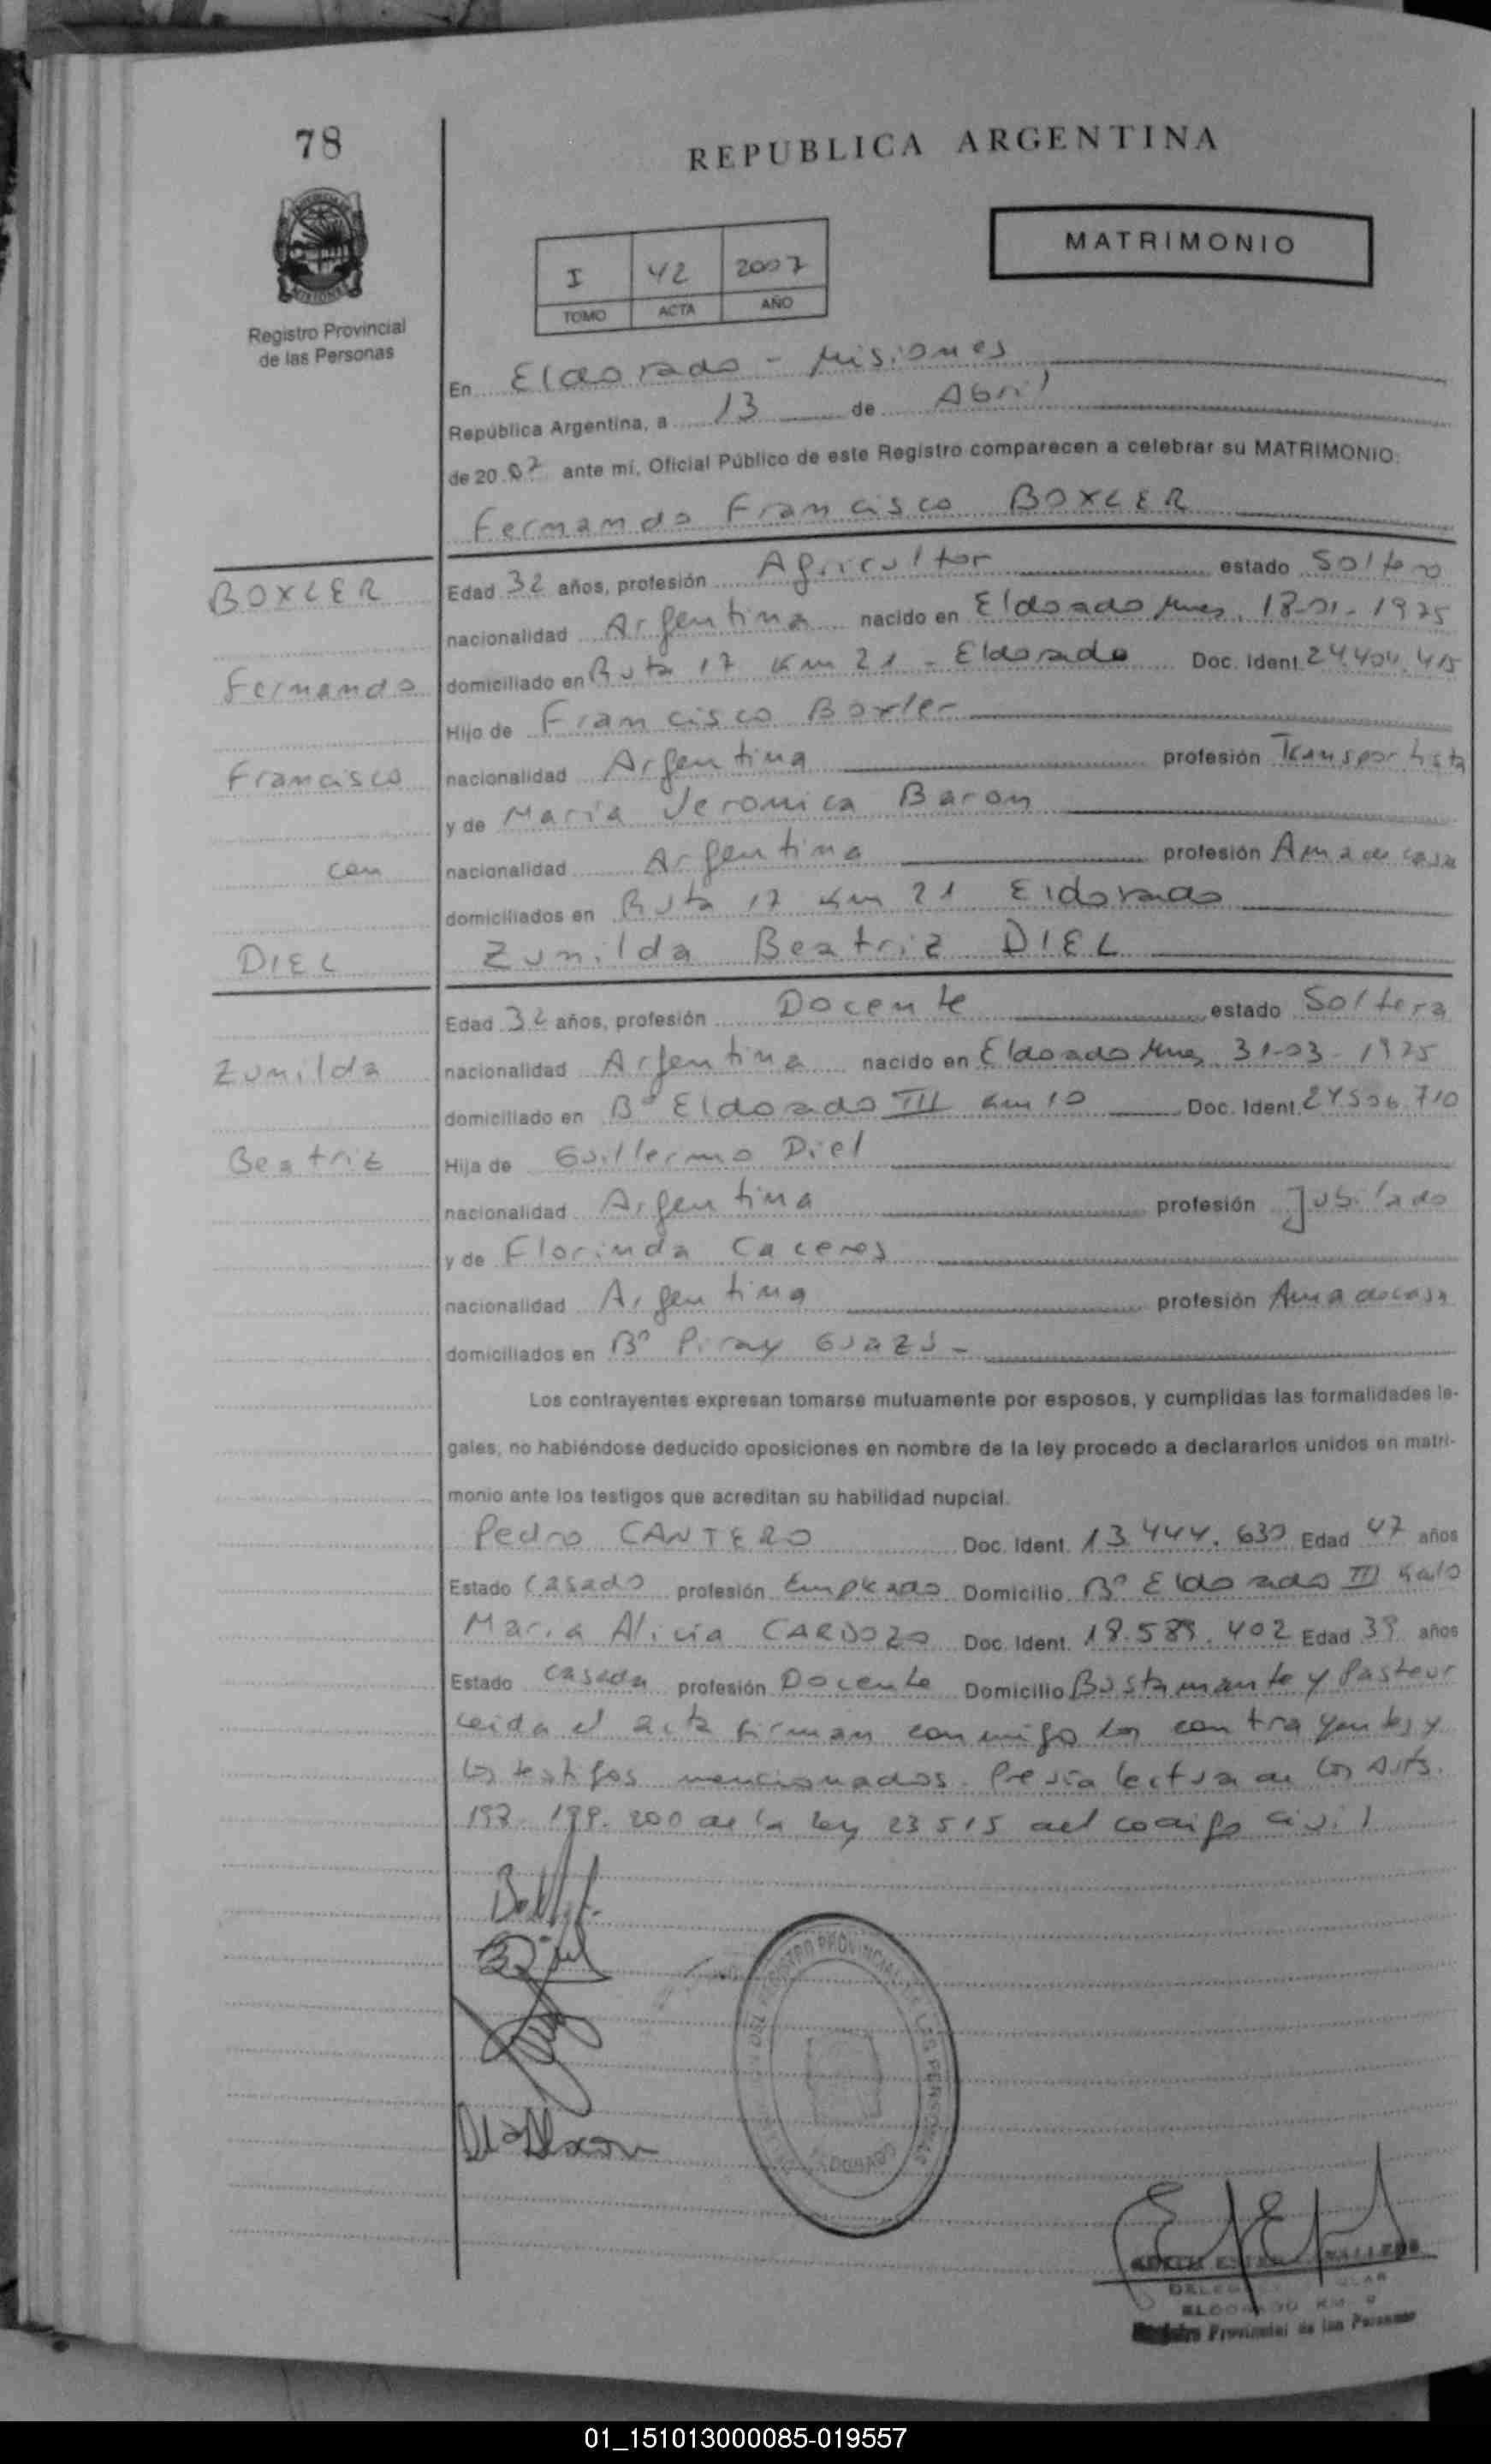 78
REPUBLICA ARGENTINA
MATRIMONIO
I 42 2007
TOMO ACTA AÑO
Registro Provincial
de las Personas
En Eldorado - Misiones
República Argentina, a 13 de Abril
de 20 07 ante mí, Oficial Público de este Registro comparecen a celebrar su MATRIMONIO:
Fernando Francisco BOXLER
BOXLER
Fernando
Francisco
con
DIEL
Zunilda
Beatriz
Edad 32 años, profesión Agricultor estado Soltero
nacionalidad Argentina nacido en Eldorado Mnes. 18-01-1975
domiciliado en Ruta 17 Km 21 - Eldorado Doc. Ident. 24.404.415
Hijo de Francisco Boxler
nacionalidad Argentina profesión Transportista
y de María Veronica Baron
nacionalidad Argentina profesión Ama de casa
domiciliados en Ruta 17 Km 21 Eldorado
Zunilda Beatriz DIEL
Edad 32 años, profesión Docente estado Soltera
nacionalidad Argentina nacido en Eldorado Mnes. 31-03-1975
domiciliado en Bº Eldorado III Km 10 Doc. Ident. 24.506.710
Hija de Guillermo Diel
nacionalidad Argentina profesión Jubilado
y de Florinda Caceres
nacionalidad Argentina profesión Ama de casa
domiciliados en Bº Piray Guazú -
Los contrayentes expresan tomarse mutuamente por esposos, y cumplidas las formalidades le-
gales, no habiéndose deducido oposiciones en nombre de la ley procedo a declararlos unidos en matri-
monio ante los testigos que acreditan su habilidad nupcial.
Pedro CANTERO Doc. Ident. 13.444.630 Edad 47 años
Estado Casado profesión Empleado Domicilio Bº Eldorado III Km10
Maria Alicia CARDOZO Doc. Ident. 18.589.402 Edad 39 años
Estado casada profesión Docente Domicilio Bustamante y Pasteur
Leida el acta firman conmigo los contrayentes y
los testigos mencionados. Previa lectura de los Arts.
198. 199. 200 de la Ley 23515 del codigo civil
DEL REGISTRO PROVINCIAL DE LAS PERSONAS
ELDORADO
ESTER
ELDORADO KM. 9
Registro Provincial de las Personas
01_151013000085-019557